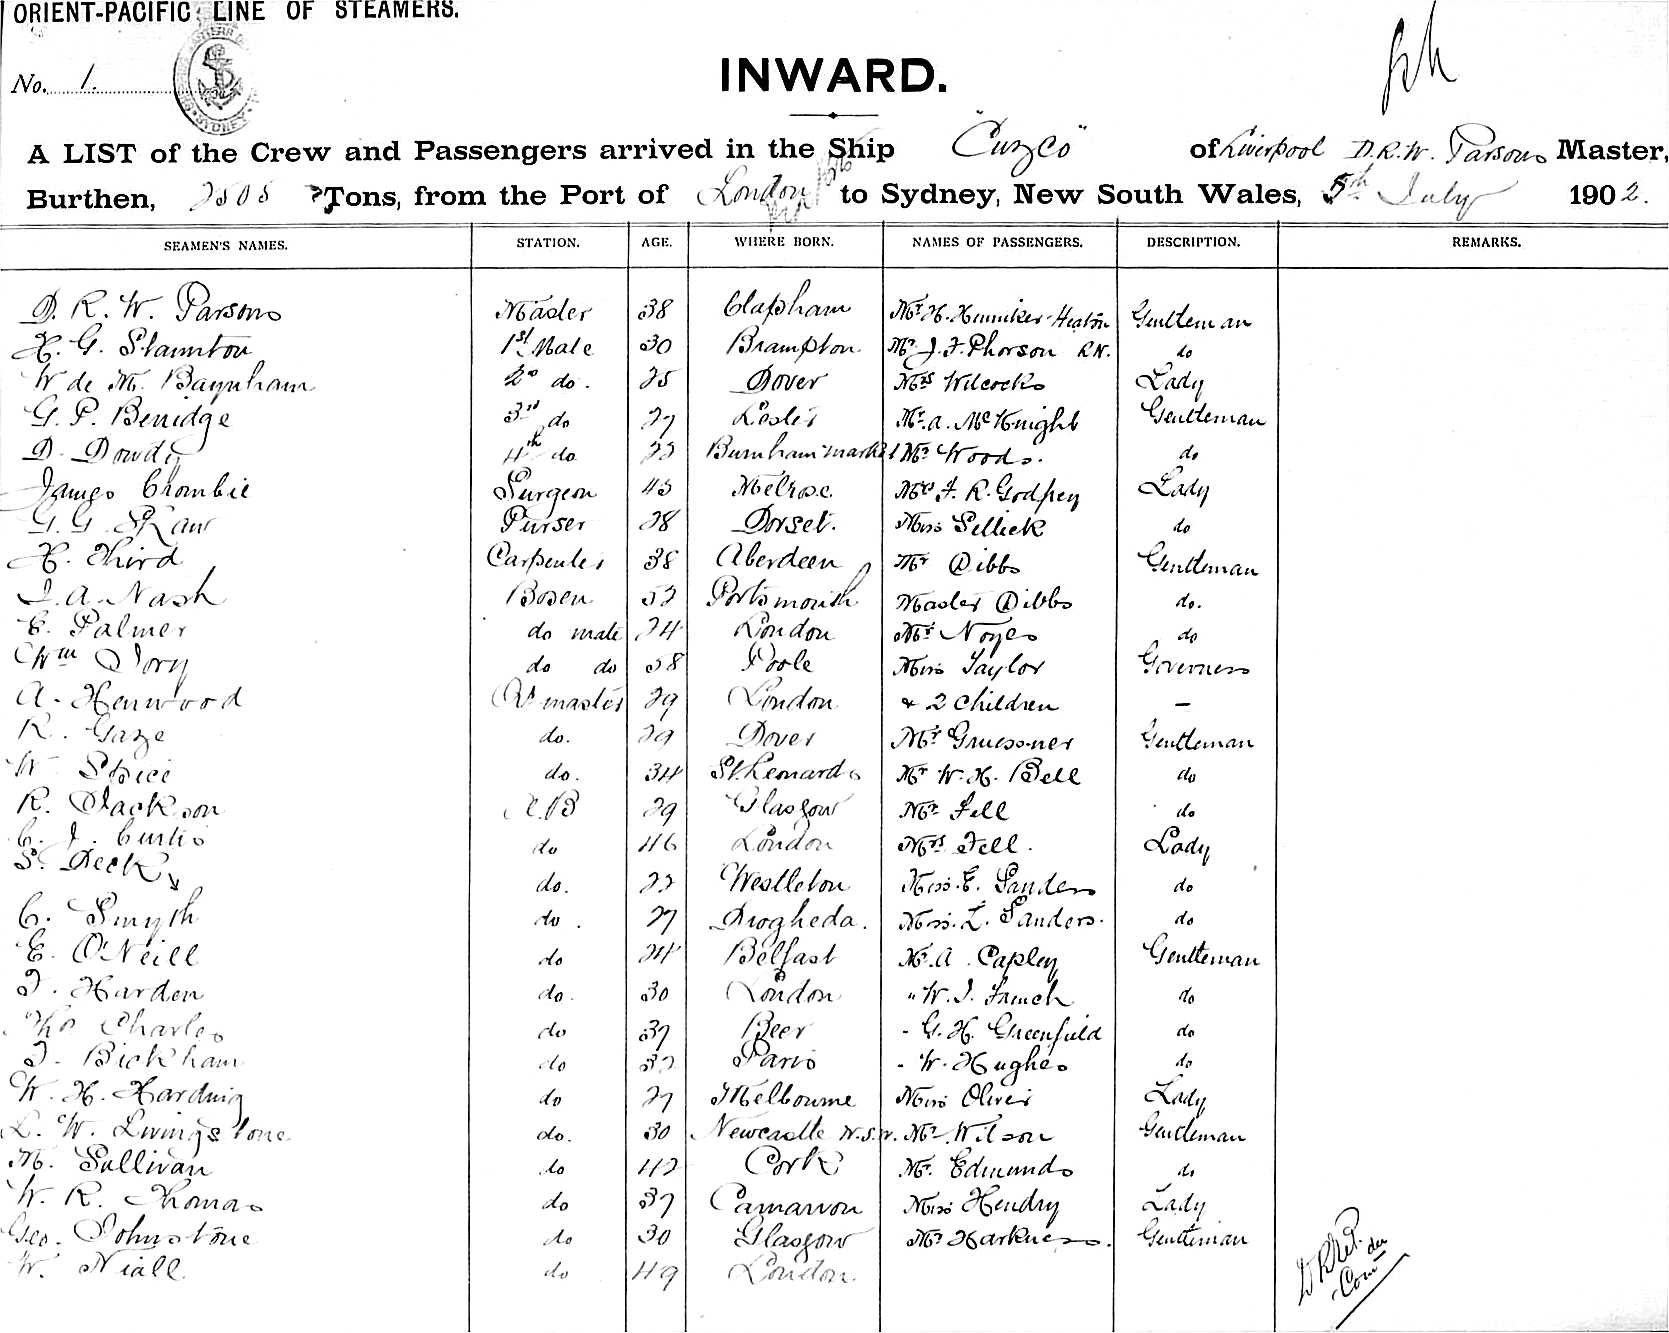 ORIENT-PACIFIC LINE OF STEAMERS.
No. 1.
INWARD.
A LIST of the Crew and Passengers arrived in the Ship "Cuzco" of Liverpool D.R.W. Parsons Master,
Burthen, Tons, from the Port of London to Sydney, New South Wales, 5th July 1902.
SEAMEN'S NAMES. STATION. AGE. WHERE BORN. NAMES OF PASSENGERS. DESCRIPTION. REMARKS.
D. R. W. Parsons Master 38 Clapham Mr. H. Henniker-Heaton Gentleman
H. G. Staunton 1st Mate 30 Brampton. Mr. J. F. Phorson R.N. do
W de M. Baynham 2nd do. 25 Dover Mrs Wilcocks Lady
G. P. Berridge 3rd do 27 Mr. A. McKnight Gentleman
D. Dowdy 4th do 22 Burnham market Mr. Woods. do
James Crombie Surgeon 45 Melrose Mrs F. R. Godfrey Lady
G. G. Shaw Purser 28 Dorset. Miss Sellick do
H. Third Carpenter 38 Aberdeen Mr Dibbs Gentleman
J. A. Nash Bosen 52 Portsmouth Master Dibbs do.
C. Palmer do mate 24 London Mr Noyes do
Wm Dory do do 58 Poole Miss Taylor Governess
A. Henwood Qr master 29 London & 2 Children —
R. Gaze do. 29 Dover Mr Gruessner Gentleman
W Spice do. 34 St. Leonards Mr W. H. Bell do
R. Jackson A.B 29 Glasgow Mr Fell do
C. J. Curtis do 46 London Mrs Fell. Lady
S. Deck do. 22 Westleton Miss. E. Sanders do
C. Smyth do. 27 Drogheda. Miss. L. Sanders. do
E. O'Neill do 24 Belfast Mr. A. Capley Gentleman
J. Harden do. 30 London " W. J. do
Thos Charles do 37 Beer - G. H. Greenfield do
J. Bickham do 32 Paris - W. Hughes do
W. H. Harding do 27 Melbourne Miss Oliver Lady
L. W. Livingstone do. 30 Newcastle N.S.W. Mr. Wilson Gentleman
M. Sullivan do 42 Cork Mr. Edmunds do
W. R. Thomas do 37 Carnarvon Miss Hendry Lady
Geo. Johnstone do 30 Glasgow Mr Harkness. Gentleman
W. Niall do 49 London